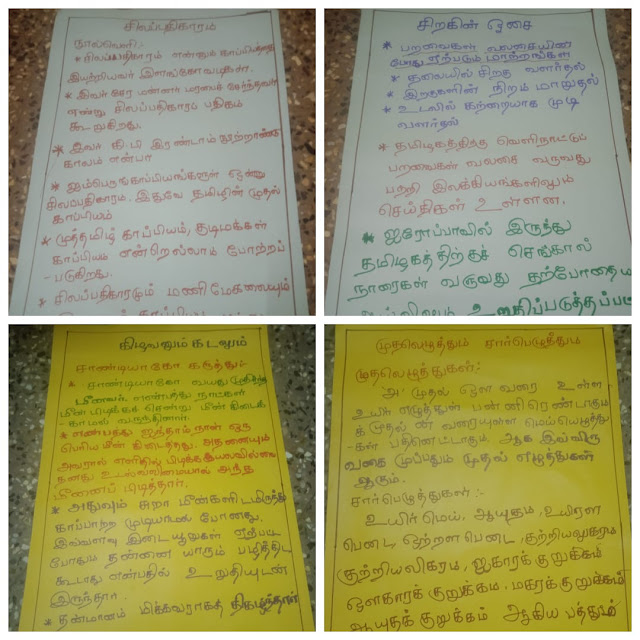 சிலப்பதிகாரம்
நூல்வெளி:-
* சிலப்பதிகாரம் என்னும் காப்பியத்தை
இயற்றியவர் இளங்கோவடிகள்.
* இவர் சேர மன்னர் மரபைச் சேர்ந்தவர்
என்று சிலப்பதிகாரப் பதிகம்
கூறுகிறது.
* இவர் கி.பி இரண்டாம் நூற்றாண்டு
காலம் என்பர்
* ஐம்பெருங்காப்பியங்களுள் ஒன்று
சிலப்பதிகாரம். இதுவே தமிழின் முதல்
காப்பியம்
* முத்தமிழ் காப்பியம், குடிமக்கள்
காப்பியம் என்றெல்லாம் போற்றப்
- படுகிறது.
* சிலப்பதிகாரமும் மணிமேகலையும்
சிறகின் ஓசை
* பறவைகள் வலசையின்
போது ஏற்படும் மாற்றங்கள்
* தலையில் சிறகு வளர்தல்
* இறகுகளின் நிறம் மாறுதல்
* உடலில் கற்றையாக முடி
வளர்தல்
* தமிழகத்திற்கு வெளிநாட்டுப்
பறவைகள் வலசை வருவது
பற்றி இலக்கியங்களிலும்
செய்திகள் உள்ளன.
* ஐரோப்பாவில் இருந்து
தமிழகத்திற்குச் செங்கால்
நாரைகள் வருவது தற்போதைய
உறுதிப்படுத்தப்பட்
கிழவனும் கடலும்
சாண்டியாகோ கருத்து:-
* சாண்டியாகோ வயது முதிர்ந்த
மீனவர். எண்பத்து நாட்கள்
மீன் பிடிக்கச் சென்று மீன் கிடைக்
- காமல் வருந்தினார்.
* எண்பத்து ஐந்தாம் நாள் ஒரு
பெரிய மீன் கிடைத்தது. அதனையும்
அவரால் எளிதில் பிடிக்க இயலவில்லை
தனது உடல்வலிமையால் அந்த
மீனைப் பிடித்தார்.
* அதுவும் சுறா மீன்களிடமிருந்து
காப்பாற்ற முடியாமல் போனது.
இவ்வளவு இடையூறுகள் ஏற்பட்ட
போதும் தன்னை யாரும் பழித்திட
கூடாது என்பதில் உறுதியுடன்
இருந்தார்
* தன்மானம் மிக்கவராகத் திகழ்ந்தார்
முதலெழுத்தும் சார்பெழுத்தும்
முதலெழுத்துகள்:-
'அ' முதல் ஔ வரை உள்ள
உயிர் எழுத்துள் பன்னிரெண்டாகும்
க் முதல் ன் வரையுள்ள மெய்யெழுத்து
- கள் பதினெட்டாகும், ஆக இவ்விரு
வகை முப்பதும் முதல் எழுத்துகள்
ஆகும்.
சார்பெழுத்துகள் :-
உயிர் மெய், ஆயுதம், உயிரள
பெடை, ஒற்றளபெடை, குற்றியலுகரம்
குற்றியலிகரம், ஐகாரக் குறுக்கம்
ஔகாரக் குறுக்கம், மகரக் குறுக்கம்
ஆயுதக் குறுக்கம் ஆகிய பத்தும்